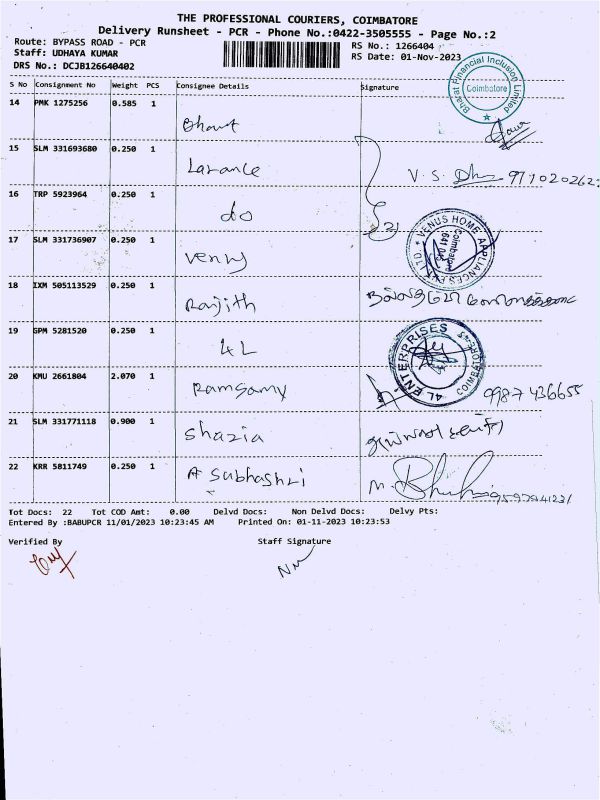 THE PROFESSIONAL COURIERS, COIMBATORE
Delivery Runsheet - PCR - Phone No.:0422-3505555 - Page No.:2
Route: BYPASS ROAD - PCR
RS No.: 1266404
Staff: UDHAYA KUMAR
RS Date: 01-Nov-2023
DRS No.: DCJB126640402
Bharat Financial Inclusion Limited
Coimbatore
S No Consignment No Weight PCS Consignee Details Signature
14 PMK 1275256 0.585 1
Bharat
15 SLM 331693680 0.250 1
Larance
V.S.
16 TRP 5923964 0.250 1
do
17 SLM 331736907 0.250 1
Venus
VENUS HOME APPLIANCES PVT LTD.
Coimbatore
18 IXM 505113529 0.250 1
Ranjith
19 GPM 5281520 0.250 1
4L
4L ENTERPRISES
20 KMU 2661804 2.070 1
Ramsamy
9987436655
21 SLM 331771118 0.900 1
Shazia
22 KRR 5811749 0.250 1
A Subhashri
Tot Docs: 22 Tot COD Amt: 0.00 Delvd Docs: Non Delvd Docs: Delvy Pts:
Entered By :BABUPCR 11/01/2023 10:23:45 AM Printed On: 01-11-2023 10:23:53
Verified By Staff Signature